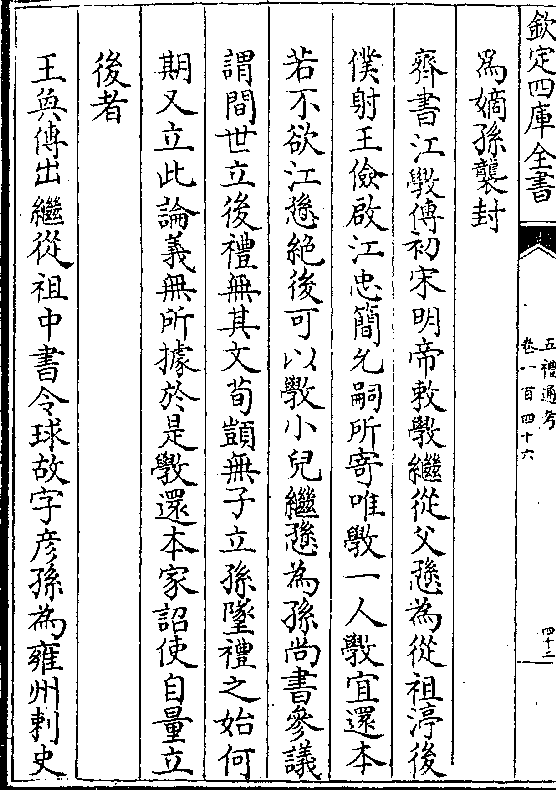 欽定四庫全書
五禮通考
卷一百四十六
四十二
為嫡孫襲封
齊書江斆傳初宋明帝敕斆繼從父愻為從祖淳後
僕射王儉啟江忠簡允嗣所寄唯斆一人斆宜還本
若不欲江愻絶後可以斆小兒繼愻為孫尚書參議
謂間世立後禮無其文荀顗無子立孫墜禮之始何
期又立此論義無所據於是斆還本家詔使自量立
後者
王奐傳出繼從祖中書令球故字彦孫為雍州刺史